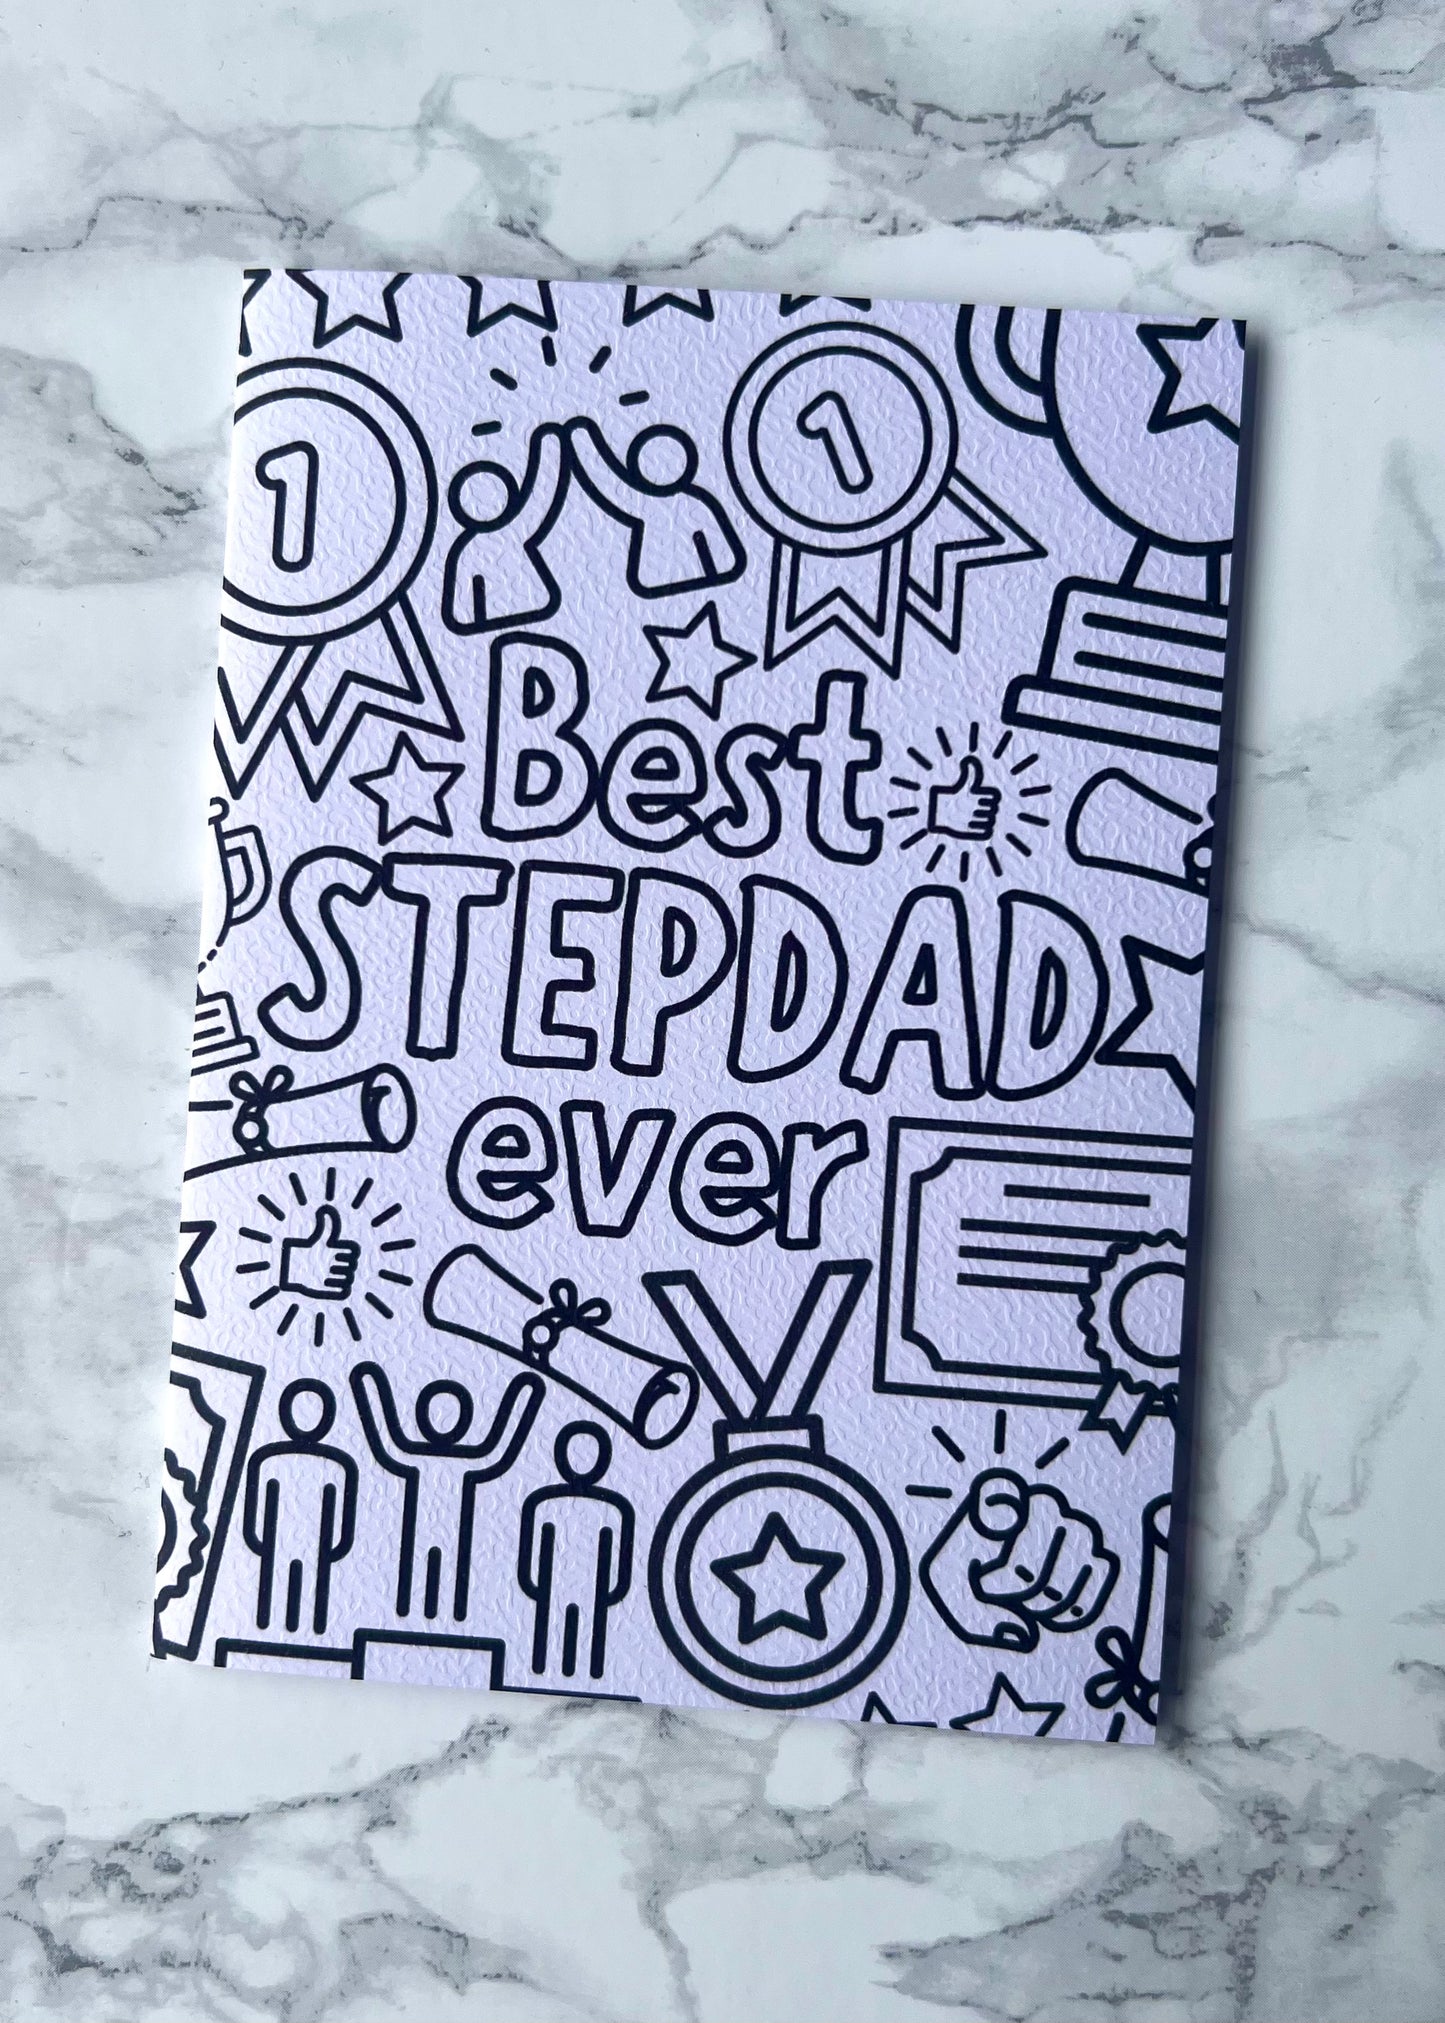 1
1
Best
STEPDAD
ever